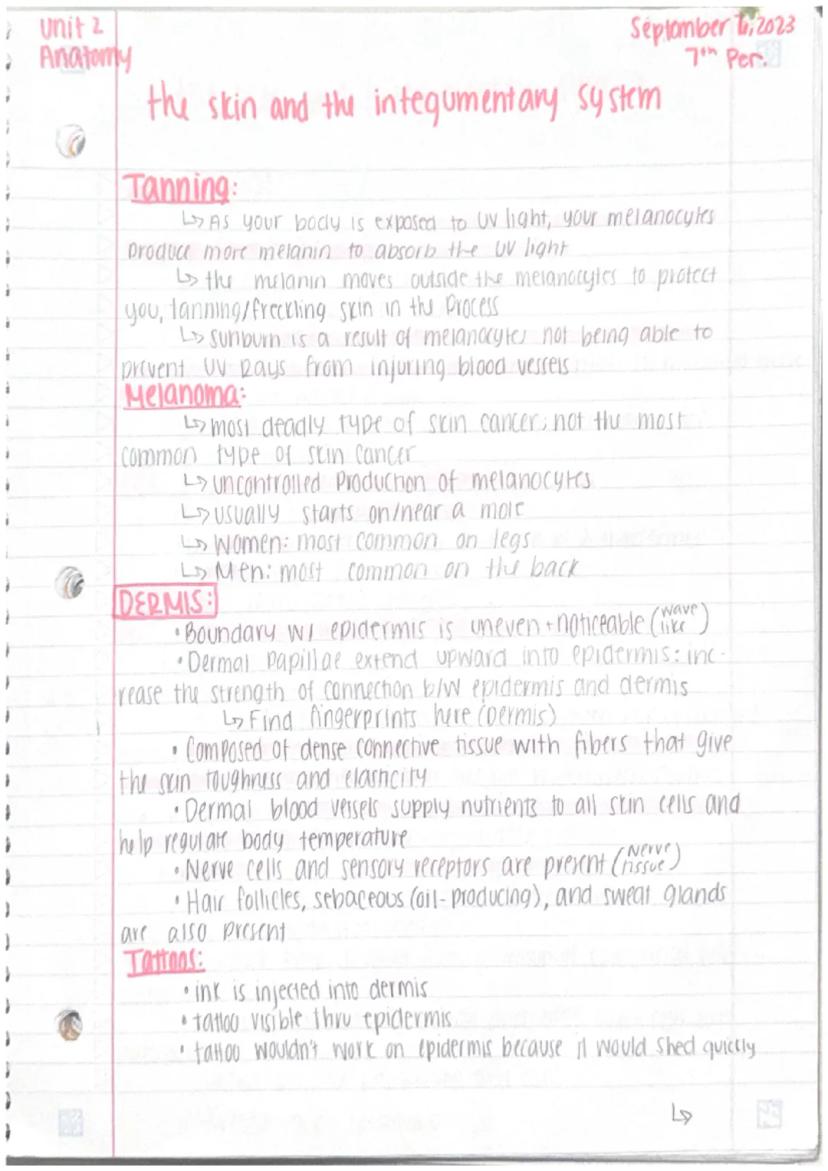 Unit 2
September 6, 2023
Anatomy
7th Per.
the skin and the integumentary system
Tanning:
↳ As your body is exposed to UV light, your melanocytes
produce more melanin to absorb the UV light
↳ the melanin moves outside the melanocytes to protect
you, tanning/freckling skin in the process
↳ sunburn is a result of melanocytes not being able to
prevent UV Rays from injuring blood vessels
Melanoma:
↳ most deadly type of skin cancer; not the most
common type of skin cancer
↳ uncontrolled Production of melanocytes
↳ usually starts on/near a mole
↳ Women: most common on legs
↳ Men: most common on the back
DERMIS:
• Boundary w/ epidermis is uneven + noticeable (wave like)
• Dermal Papillae extend upward into epidermis: inc-
rease the strength of connection b/w epidermis and dermis
↳ Find fingerprints here (Dermis)
• Composed of dense connective tissue with fibers that give
the skin toughness and elasticity
• Dermal blood vessels supply nutrients to all skin cells and
help regulate body temperature
• Nerve cells and sensory receptors are present (Nerve tissue)
• Hair follicles, sebaceous (oil-producing), and sweat glands
are also present
Tattoos:
• ink is injected into dermis
• tattoo visible thru epidermis
• tattoo wouldn't work on epidermis because it would shed quickly
↳